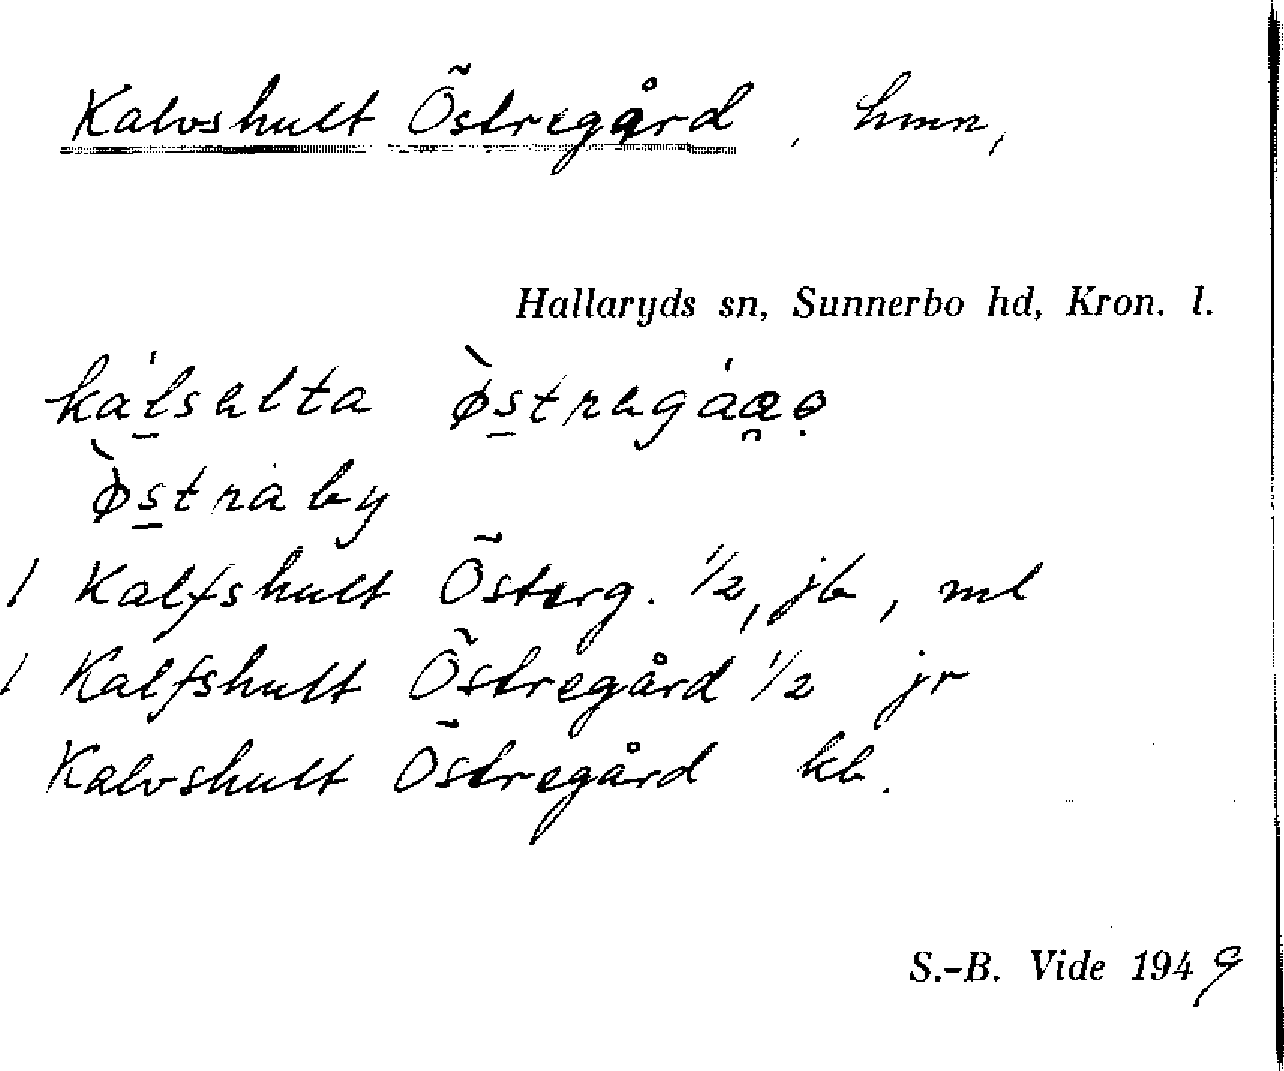 Kalvshult Östregård, hmn,
Hallaryds sn, Sunnerbo hd, Kron. l.
Kalfshult Österg. 1/2, jb, ml
Kalfshult Östregård 1/2 jr
Kalvshult Östregård kb.
S.-B. Vide 1949